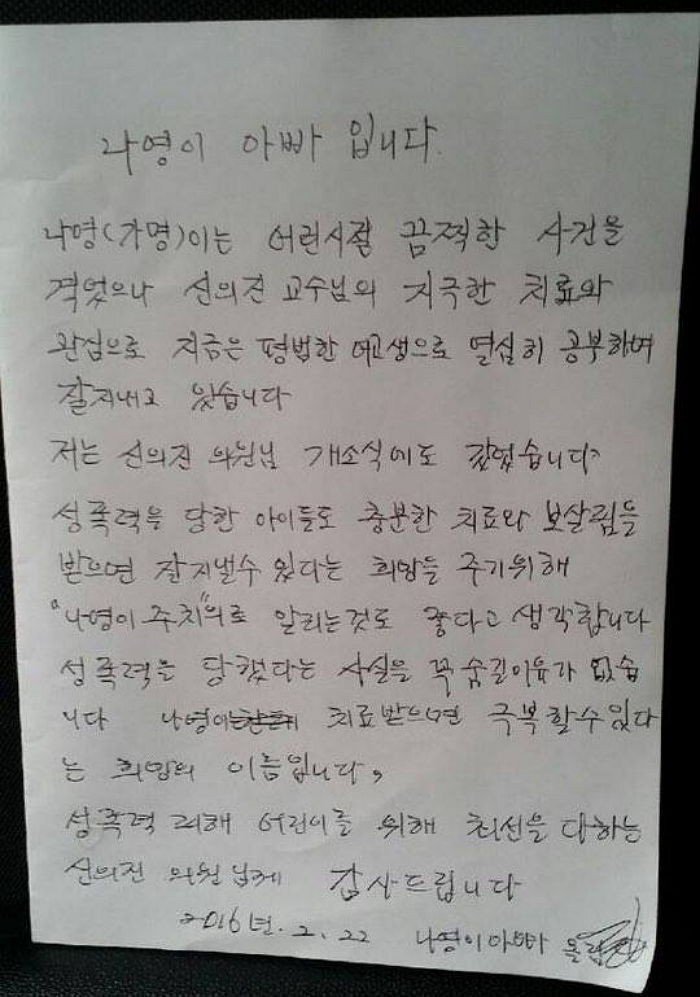 나영이 아빠 입니다.
나영(가명)이는 어린시절 끔찍한 사건을
격었으나 신의진 교수님의 지극한 치료와
관심으로 지금은 평범한 여고생으로 열심히 공부하며
잘지내고 있습니다
저는 신의진 의원님 개소식에도 갔었습니다
성폭력을 당한 아이들도 충분한 치료와 보살림을
받으면 잘지낼수 있다는 희망을 주기위해
"나영이 주치"의로 알리는것도 좋다고 생각합니다
성폭력을 당했다는 사실을 꼭 숨길이유가 없습
니다 나영이는 치료받으면 극복할수있다
는 희망의 이름입니다,
성폭력 피해 어린이를 위해 최선을 다하는
신의진 의원님께 감사드립니다
2016년. 2. 22 나영이아빠 올림